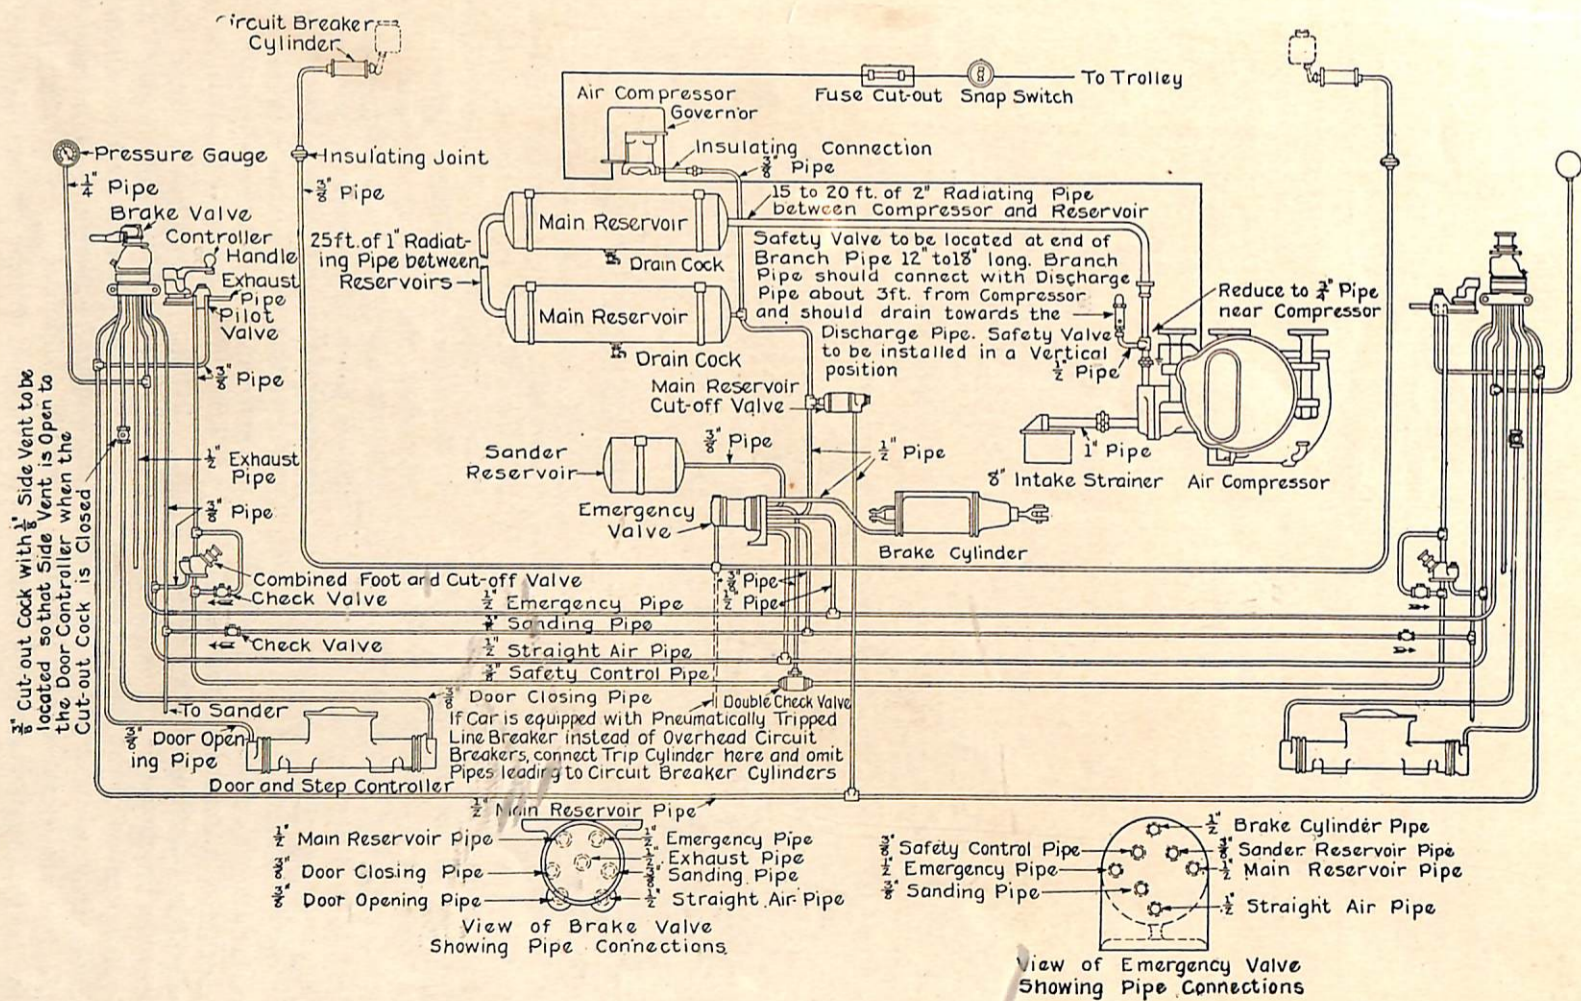 ircuit Breaker
Cylinder
Fuse Cut-out
Snap Switch
To Trolley
Air Compressor
Governor
Insulating Connection
3/8" Pipe
Pressure Gauge
1/4" Pipe
Insulating Joint
3/8" Pipe
Brake Valve
Controller
Handle
Exhaust
Pipe
Pilot
Valve
3/8" Pipe
25ft. of 1" Radiat-
ing Pipe between
Reservoirs
Main Reservoir
Drain Cock
Main Reservoir
Drain Cock
15 to 20 ft. of 2" Radiating Pipe
between Compressor and Reservoir
Safety Valve to be located at end of
Branch Pipe 12" to 18" long. Branch
Pipe should connect with Discharge
Pipe about 3ft. from Compressor
and should drain towards the
Discharge Pipe. Safety Valve
to be installed in a Vertical
position
1/2" Pipe
Reduce to 3/4" Pipe
near Compressor
Main Reservoir
Cut-off Valve
3/8" Cut-out Cock with 1/8" Side Vent to be
located so that Side Vent is Open to
the Door Controller when the
Cut-out Cock is Closed
1/2" Exhaust
Pipe
3/8" Pipe
Sander
Reservoir
3/8" Pipe
1/2" Pipe
1" Pipe
8" Intake Strainer
Air Compressor
Emergency
Valve
Brake Cylinder
Combined Foot and Cut-off Valve
Check Valve
3/8" Pipe
1/2" Pipe
1/2" Emergency Pipe
3/8" Sanding Pipe
Check Valve
1/2" Straight Air Pipe
3/8" Safety Control Pipe
3/8" Door Closing Pipe
Double Check Valve
To Sander
3/8" Door Open
ing Pipe
If Car is equipped with Pneumatically Tripped
Line Breaker instead of Overhead Circuit
Breakers, connect Trip Cylinder here and omit
Pipes leading to Circuit Breaker Cylinders
Door and Step Controller
1/2" Main Reservoir Pipe
1/2" Main Reservoir Pipe
3/8" Door Closing Pipe
3/8" Door Opening Pipe
1/2" Emergency Pipe
1/2" Exhaust Pipe
3/8" Sanding Pipe
1/2" Straight Air Pipe
View of Brake Valve
Showing Pipe Connections
3/8" Safety Control Pipe
1/2" Emergency Pipe
3/8" Sanding Pipe
1/2" Brake Cylinder Pipe
3/8" Sander Reservoir Pipe
1/2" Main Reservoir Pipe
1/2" Straight Air Pipe
View of Emergency Valve
Showing Pipe Connections